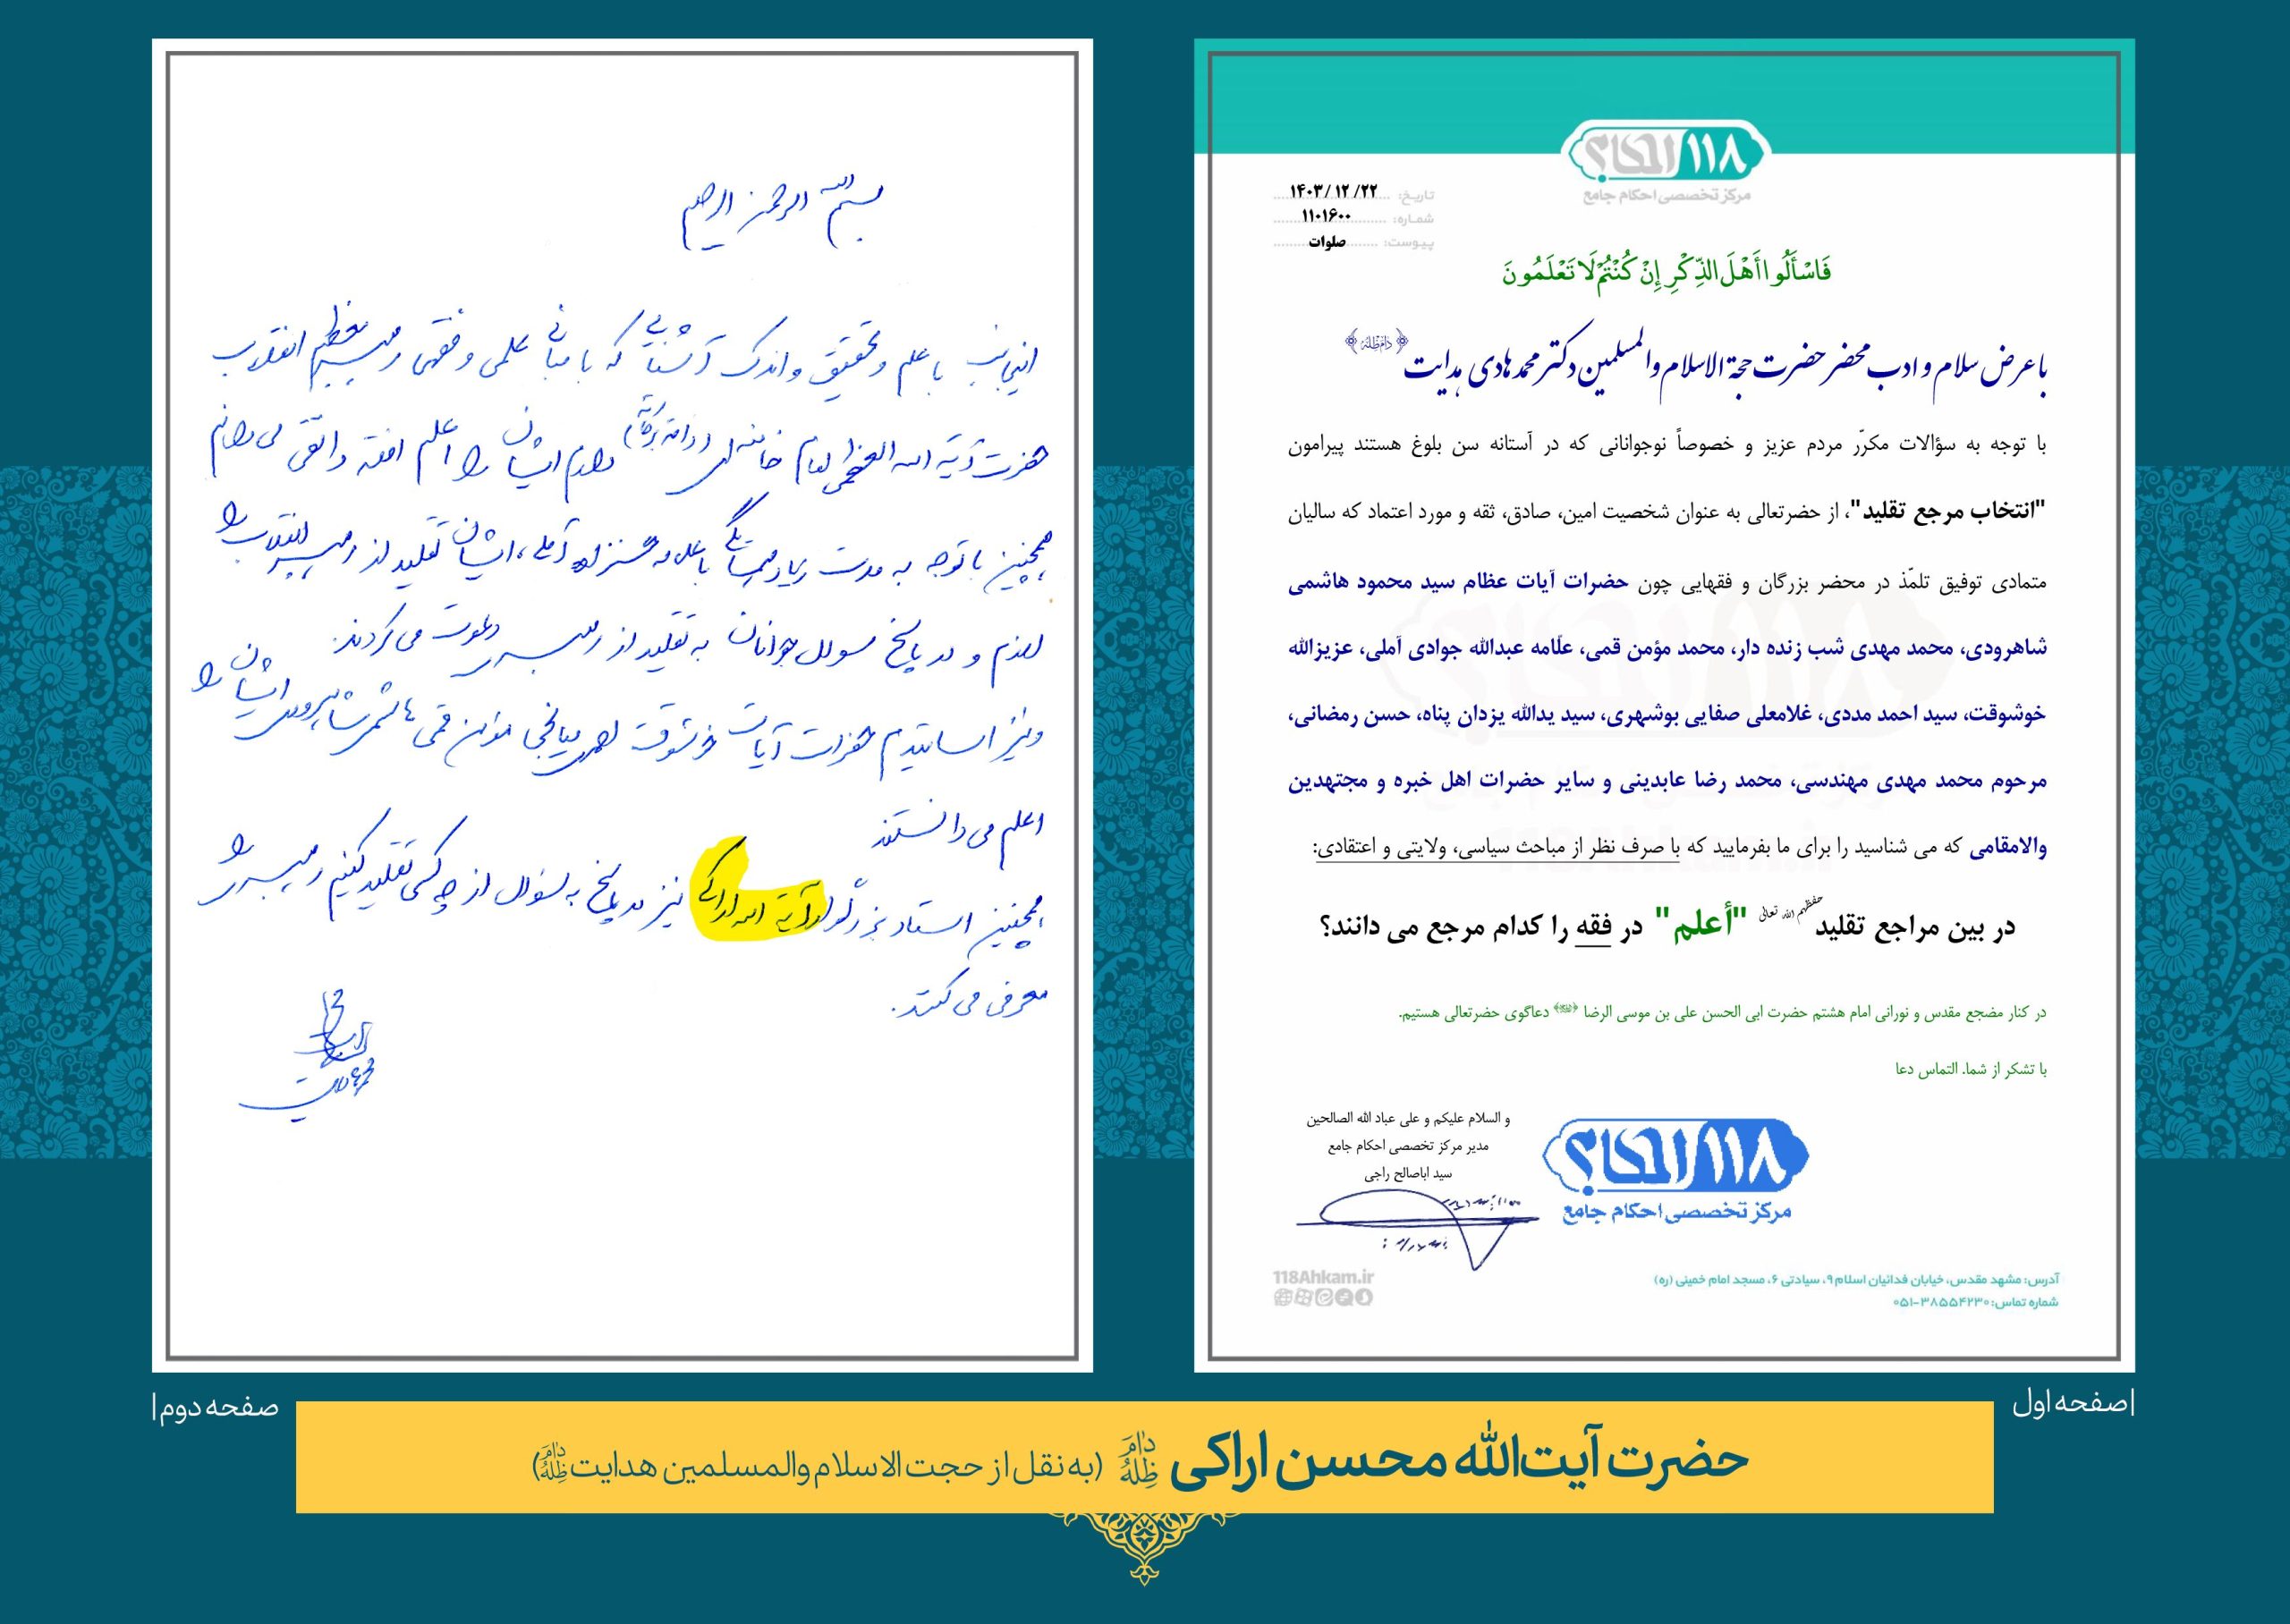 ۱۱۸ احکام
مرکز تخصصی احکام جامع
تاریخ: ۱۴۰۳/۱۲/۲۲
شماره: ۱۱۰۱۶۰۰
پیوست: صلوات
فَاسْأَلُوا أَهْلَ الذِّكْرِ إِنْ كُنْتُمْ لَا تَعْلَمُونَ
با عرض سلام و ادب محضر حضرت حجة الاسلام والمسلمین دکتر محمد هادی هدایت ﴿دام ظله﴾
با توجه به سؤالات مکرّر مردم عزیز و خصوصاً نوجوانانی که در آستانه سن بلوغ هستند پیرامون
"انتخاب مرجع تقلید"، از حضرتعالی به عنوان شخصیت امین، صادق، ثقه و مورد اعتماد که سالیان
متمادی توفیق تلمّذ در محضر بزرگان و فقهایی چون حضرات آیات عظام سید محمود هاشمی
شاهرودی، محمد مهدی شب زنده دار، محمد مؤمن قمی، علّامه عبدالله جوادی آملی، عزیزالله
خوشوقت، سید احمد مددی، غلامعلی صفایی بوشهری، سید یدالله یزدان پناه، حسن رمضانی،
مرحوم محمد مهدی مهندسی، محمد رضا عابدینی و سایر حضرات اهل خبره و مجتهدین
والامقامی که می شناسید را برای ما بفرمایید که با صرف نظر از مباحث سیاسی، ولایتی و اعتقادی:
در بین مراجع تقلید حفظهم الله تعالی "أعلم" در فقه را کدام مرجع می دانند؟
در کنار مضجع مقدس و نورانی امام هشتم حضرت ابی الحسن علی بن موسی الرضا دعاگوی حضرتعالی هستیم.
با تشکر از شما. التماس دعا
و السلام علیکم و علی عباد الله الصالحین
مدیر مرکز تخصصی احکام جامع
سید اباصالح راجی
۱۱۸ احکام
مرکز تخصصی احکام جامع
118Ahkam.ir
آدرس: مشهد مقدس، خیابان فدائیان اسلام ۹، سیادتی ۶، مسجد امام خمینی (ره)
شماره تماس: ۰۵۱-۳۸۵۵۴۲۳۰
بسم الله الرحمن الرحیم
اینجانب با علم و تحقیق و اندک آشنایی که با مبانی علمی و فقهی رهبر معظم انقلاب
حضرت آیة الله العظمی امام خامنه ای (دامت برکاته) دارم ایشان را اعلم افقه و اتقی می دانم
همچنین با توجه به مدت زیاد همسایگی با علامه حسن زاده آملی، ایشان تقلید از رهبر انقلاب را
لازم و در پاسخ سوال جوانان به تقلید از رهبری دعوت می کردند.
و نیز اساتیدم حضرات آیات خوشوقت احمدی میانجی مؤمن قمی هاشمی شاهرودی ایشان را
اعلم می دانستند
همچنین استاد بزرگوار آیة الله اراکی نیز در پاسخ به سؤال از چه کسی تقلید کنیم رهبری را
معرفی می کنند.
|صفحه اول
صفحه دوم|
حضرت آیت‌الله محسن اراکی دام ظله (به نقل از حجت الاسلام والمسلمین هدایت دام ظله)